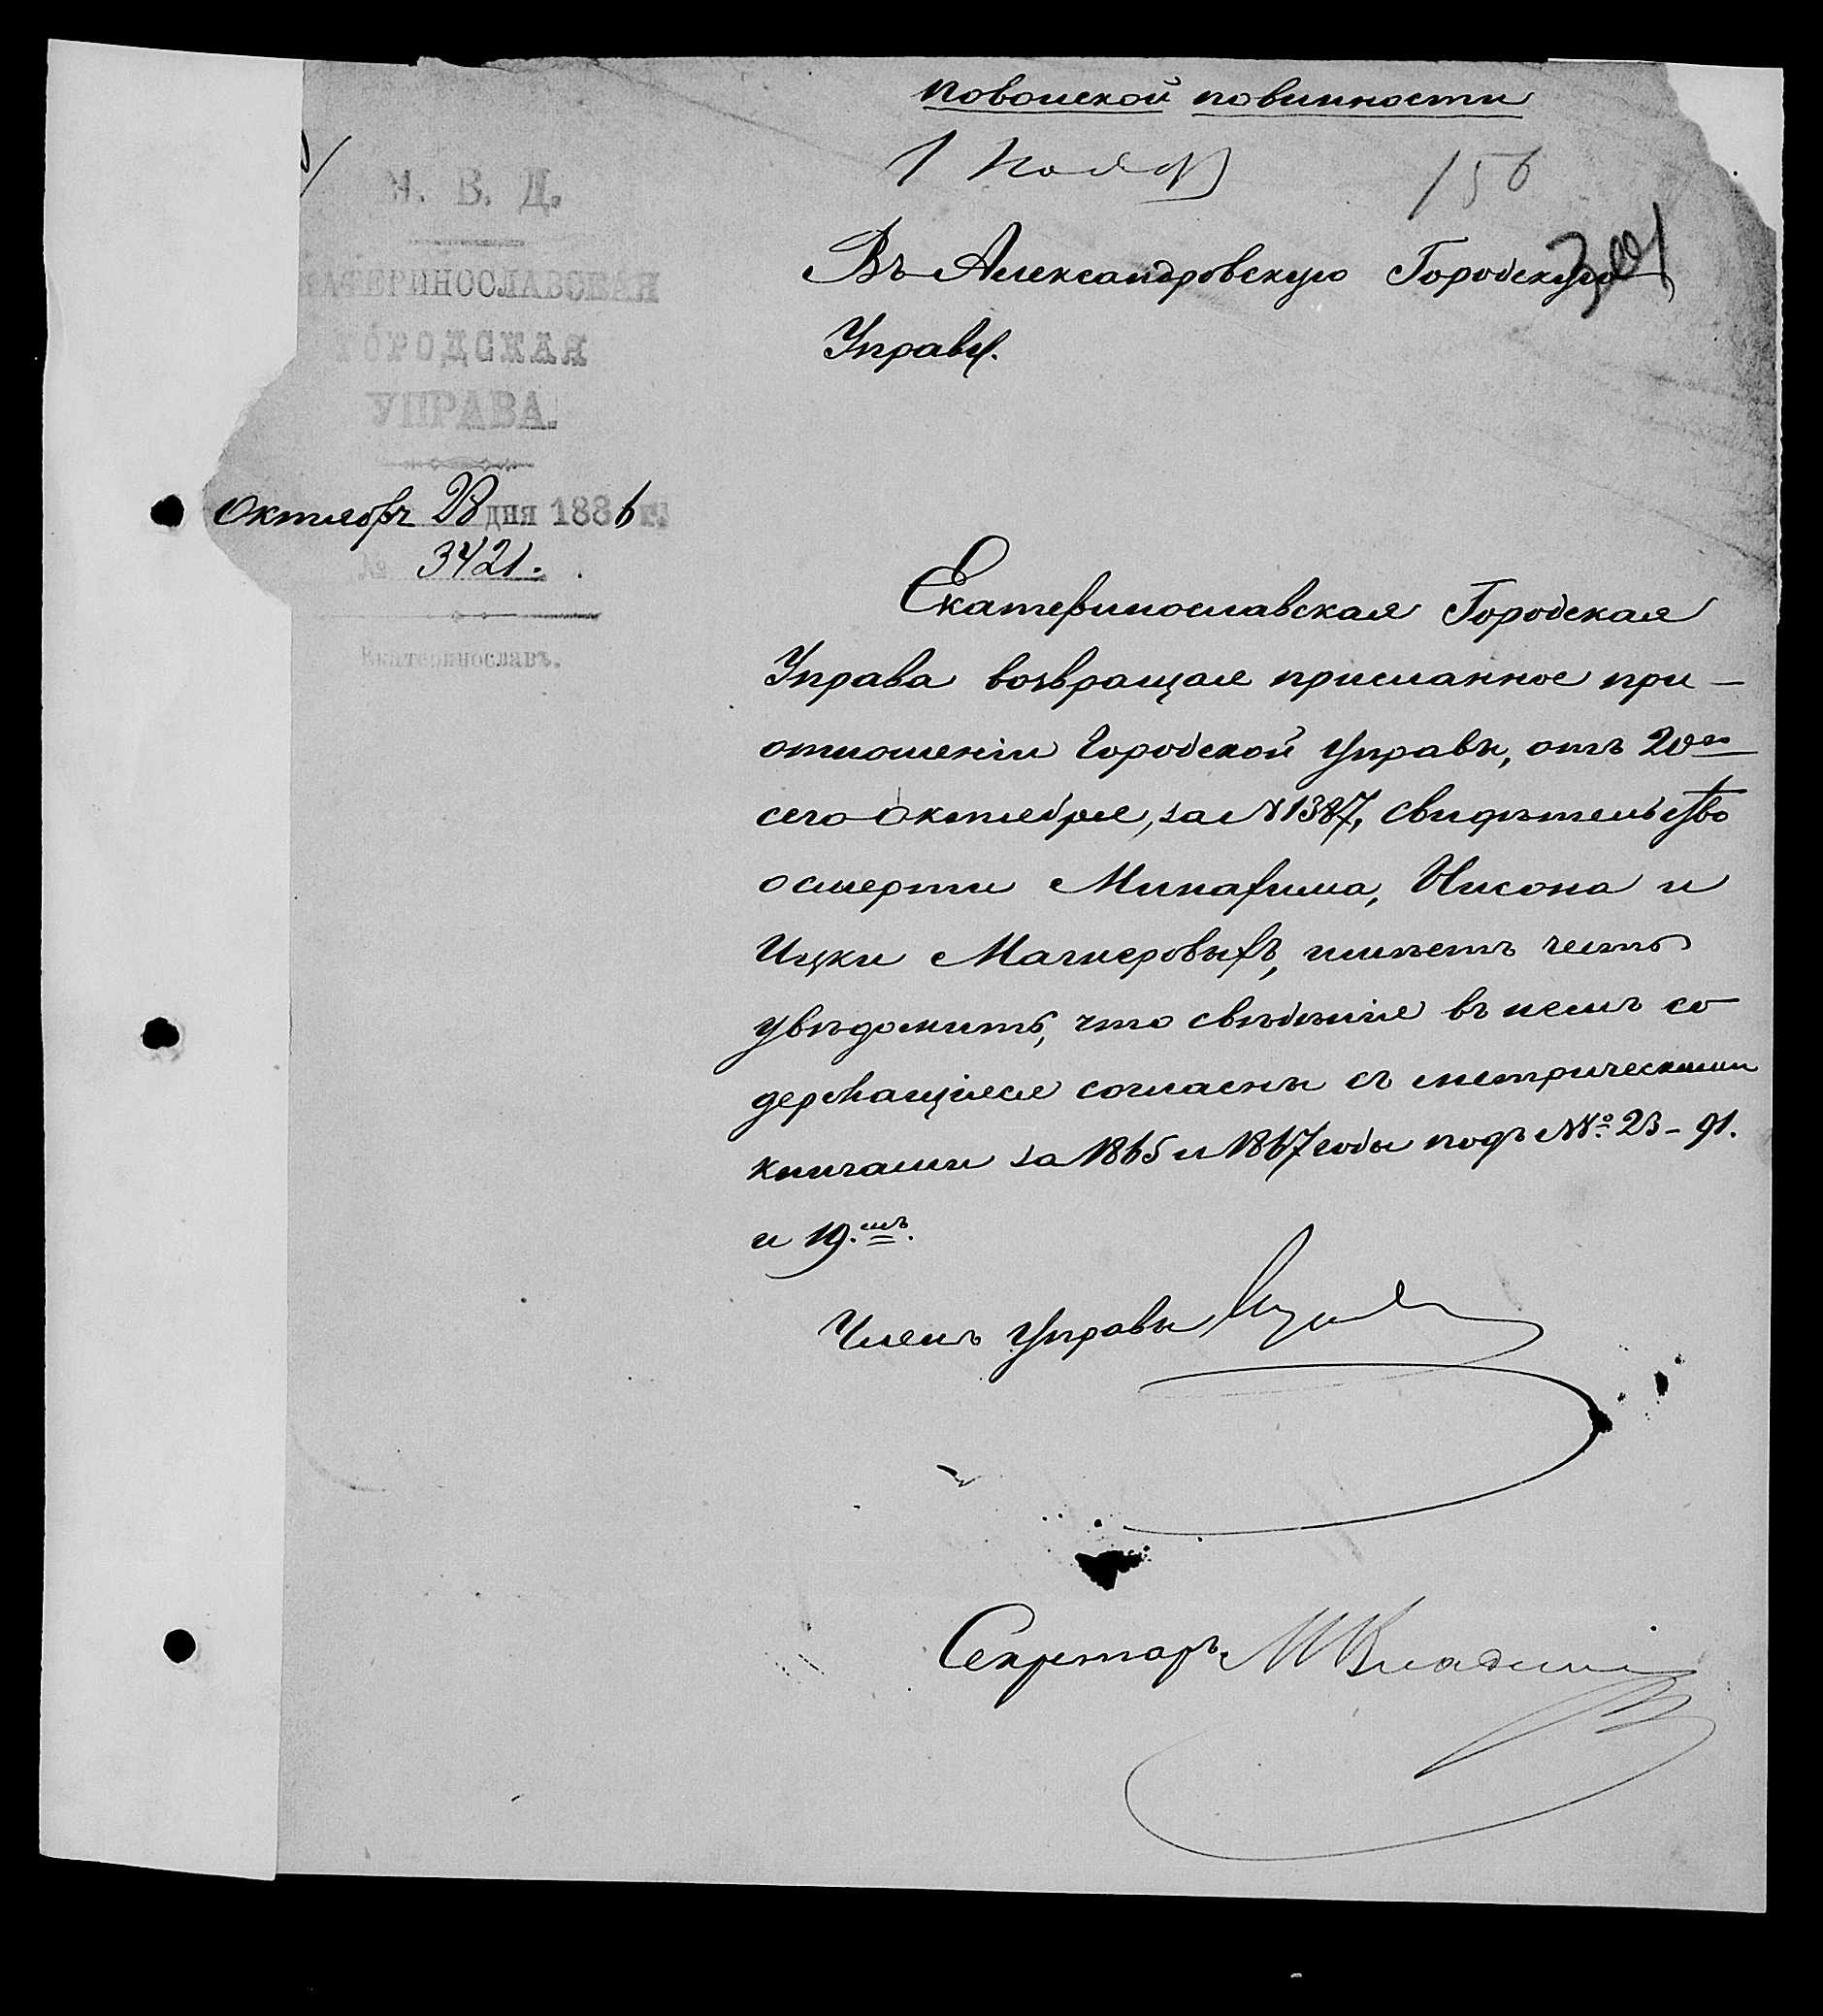 по воинской повинности
1 Нояб
156
301
М. В. Д.
ЕКАТЕРИНОСЛАВСКАЯ
ГОРОДСКАЯ
УПРАВА.
Октября 28 дня 1886 г.
№ 3421.
Екатеринославъ.
Въ Александровскую Городскую
Управу.
Екатеринославская Городская
Управа возвращая присланное при-
отношеніи Городской Управы, отъ 20го
сего Октября, за №1387, свидѣтельство
о смерти Минахима, Нисона и
Ицки Магнеровыхъ, имѣетъ честь
увѣдомить, что свѣдѣнія въ немъ со
держащіяся согласны съ метрическими
книгами за 1865 и 1867 годы подъ №№ 23-91.
и 19.мъ.
Членъ Управы
Секретарь